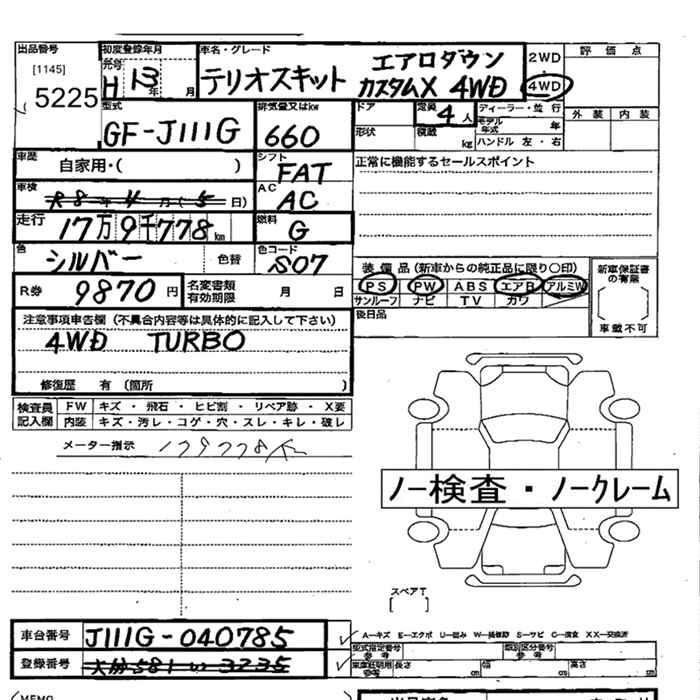 出品番号
[1145]
5225
初度登録年月
元号
H 13年 月
車名・グレード
テリオスキット
エアロダウン
カスタムX 4WD
2WD
4WD
評価点
外装 内装
型式
GF-J111G
排気量又はkw
660
ドア
形状
定員
4人
積載
kg
ディーラー・並行
モデル年式 年
ハンドル 左・右
車歴
自家用・( )
シフト
FAT
正常に機能するセールスポイント
車検
R8年4月(5日)
AC
AC
走行
17万9千778km
燃料
G
色
シルバー
色替
色コード
S07
R券
9870円
名変書類
有効期限
月 日
装備品(新車からの純正品に限り〇印)
PS PW ABS エアB アルミW
サンルーフ ナビ TV カワ
後日品
新車保証書
の有無
車載不可
注意事項車告欄(不具合内容等は具体的に記入して下さい)
4WD TURBO
修復歴 有〔箇所 〕
検査員
記入欄
FW キズ・飛石・ヒビ割・リペア跡・X要
内装 キズ・汚レ・コゲ・穴・スレ・キレ・破レ
メーター指示 179778K
ノー検査・ノークレーム
スペアT
[ ]
車台番号
J111G-040785
登録番号
大分581い3235
A-キズ E-エクボ U-凹み W-補修跡 S-サビ C-腐食 XX-交換済
型式指定番号
参考
類別区分番号
参考
長さ
幅
高さ
MEMO